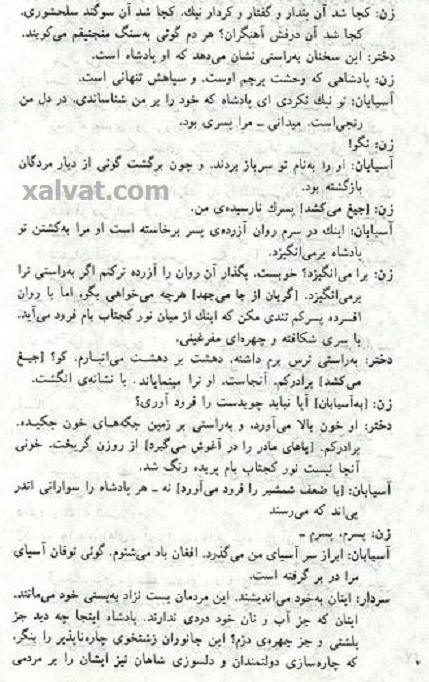 زن: کجا شد آن پندار و گفتار و کردار نیک. کجا شد آن سوگند سلحشوری.
کجا شد آن درفش آهنگران؟ هر دم گوئی به‌سنگ منجنیقم می‌کوبند.
دختر: این سخنان به‌راستی نشان می‌دهد که او پادشاه است.
زن: پادشاهی که وحشت پرچم اوست. و سپاهش تنهائی است.
آسیابان: تو نیك نکردی ای پادشاه که خود را بر من شناساندی. در دل من
رنجی‌است. میدانی ـ مرا پسری بود.
زن: نگو!
آسیابان: او را به‌نام تو سرباز بردند. و چون برگشت گوئی از دیار مردگان
بازگشته بود.
xalvat.com
زن: [جیغ می‌کشد] پسرك نارسیده‌ی من.
آسیابان: اینك در سرم روان آزرده‌ی پسر برخاسته است او مرا به‌کشتن تو
پادشاه برمی‌انگیزد.
زن: برا می‌انگیزد؟ خوبست. بگذار آن روان را آزرده ترکنم اگر به‌راستی ترا
برمی‌انگیزد. [گریان از جا می‌جهد] هرچه می‌خواهی بگو. اما با روان
افسرده پسرکم تندی مکن که اینك از میان نور کجتاب بام فرود می‌آید.
با سری شکافته و چهره‌ای مفرغینی.
دختر: به‌راستی ترس برم داشته. دهشت بر دهشت می‌انبارم. کو؟ [جیغ
می‌کشد] برادرکم. آنجاست. او ترا مینمایاند. با نشانه‌ی انگشت.
زن: [به‌آسیابان] آیا نباید چوبدست را فرود آوری؟
دختر: او خون بالا می‌آورد. و به‌راستی بر زمین جکه‌های خون جکیده.
برادرکم. [پاهای مادر را در آغوش می‌گیرد] از روزن گریخت. خونی
آنجا نیست نور کجتاب بام پریده رنگ شد.
آسیابان: [با ضعف شمشیر را فرود می‌آورد] نه ـ هر پادشاه را سوارانی اندر
پی‌اند که می‌رسند
زن: پسرم. پسرم ـ
آسیابان: ابراز سر آسیای من می‌گذرد. افغان باد می‌شنوم. گوئی توفان آسیای
مرا در بر گرفته است.
سردار: اینان به‌خود می‌اندیشند. این مردمان پست نژاد به‌پستی خود می‌مانند.
اینان که جز آب و نان خود دردی ندارند. پادشاه اینجا چه دید جز
پلشتی و جز چهره‌ی دژم؟ این جانوران زشتخوی چاره‌ناپذیر را بنگر.
که چاره‌سازی دولتمندان و دلسوزی شاهان نیز ایشان را بر مردمی